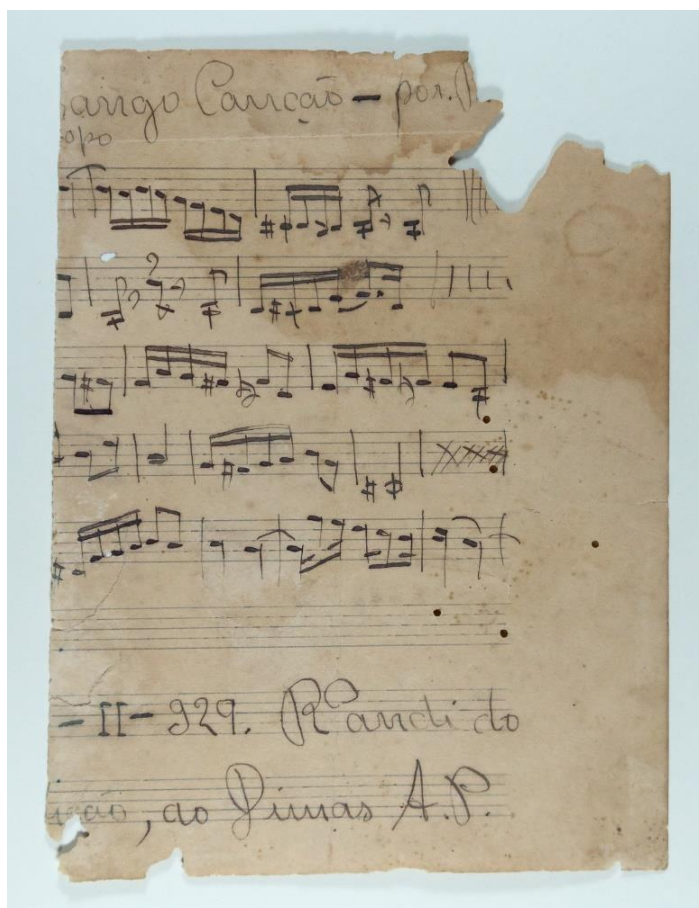 ango Canção — por. R
opo
-II- 929. RCandido
ção, ao Dimas A.P.